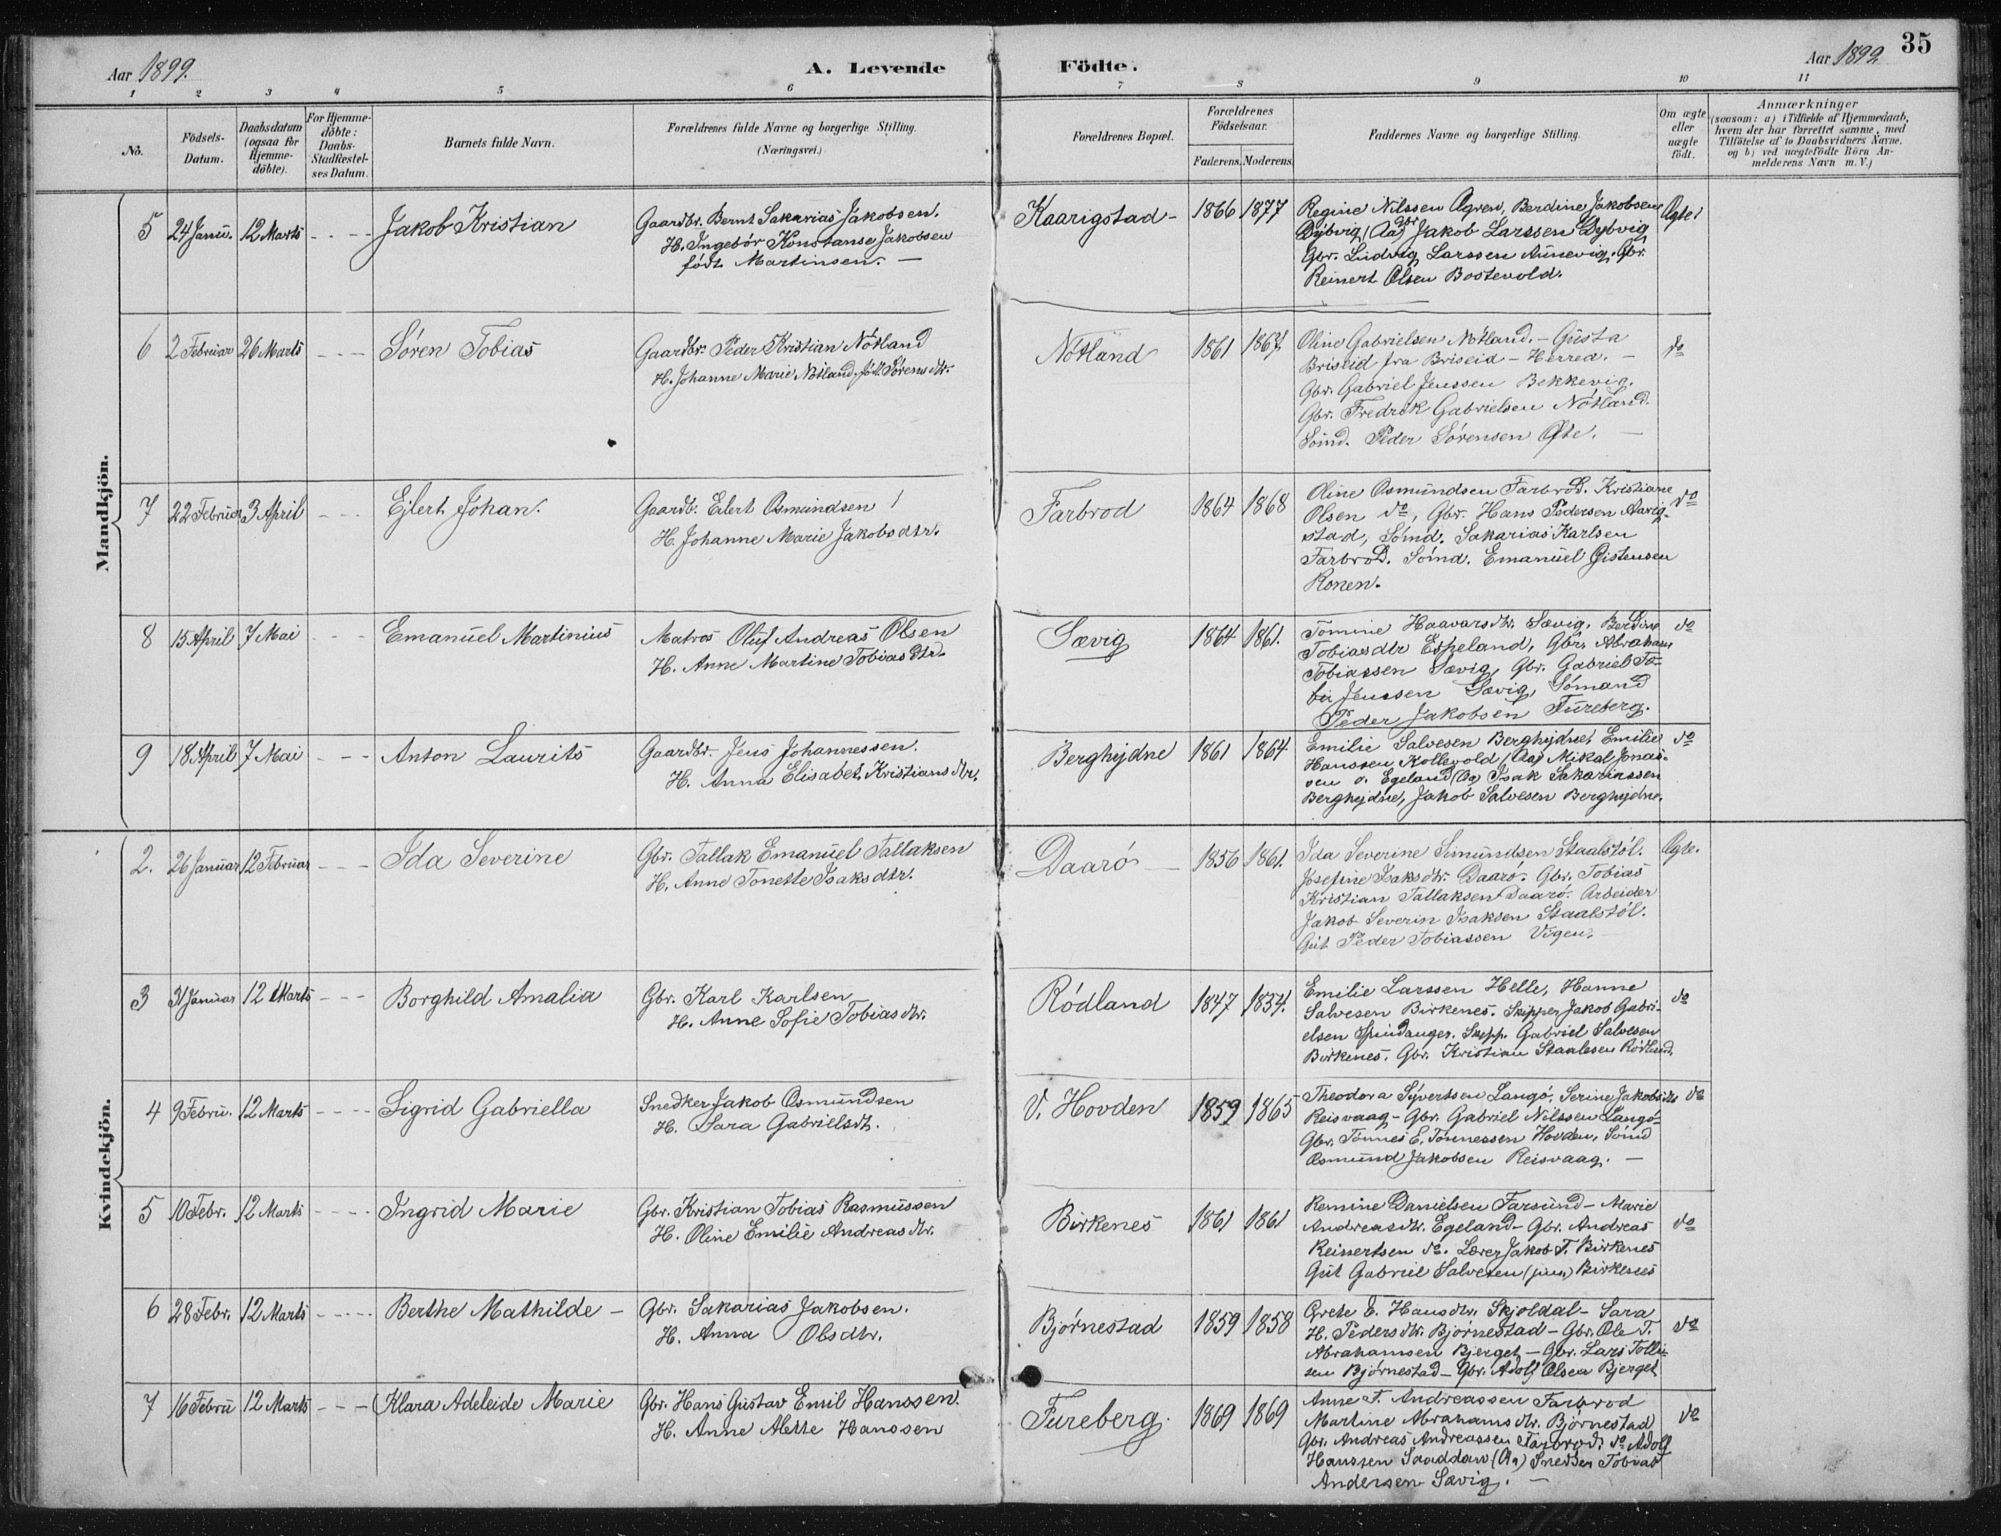 35
Aar 1899.
A. Levende
Födte.
Aar 1899
1 2 3 4 5 6 7 8 9 10 11
No.
Födsels-
Datum.
Daabsdatum
(ogsaa for
Hjemme-
döbte).
For Hjemme-
döbte:
Daabs-
Stadfæstel-
ses Datum.
Barnets fulde Navn.
Forældrenes fulde Navne og borgerlige Stilling.
(Næringsvei.)
Forældrenes Bopæl.
Forældrenes
Födselsaar.
Faderens. Moderens.
Faddernes Navne og borgerlige Stilling.
Om ægte
eller
uægte
födt.
Anmærkninger
(saasom: a) i Tilfælde af Hjemmedaab,
hvem der har forrettet samme, med
Tilföielse af to Daabsvidners Navne,
og b) ved uægtefödte Börn An-
melderens Navn m. V.)
Mandkjön.
5 24 Janu. 12 Marts Jakob Kristian
Gaardbr. Bernt Sakarias Jakobsen.
H. Ingebór Konstanse Jakobsen
født Martinsen. —
Kaarigstad - 1866 1877
Regine Nilssen Ogren, Berdine Jakobsen
Dybvig (Aa) Gbr Jakob Larssen Dybvig
Gbr. Ludvig Larssen Aunevig, Gbr.
Reinert Olsen Bostevold.
Ægte
6 2 Februar 26 Marts Søren Tobias
Gaardbr. Peder Kristian Nótland
H. Johanne Marie Nótland, født Sørensdtr.
Nótland 1861 1867
Oline Gabrielsen Nótland. - Gusta
Briseid fra Briseid - Herred. -
Gbr. Gabriel Jenssen Bekkevig.
Gbr. Fredrik Gabrielsen Nótland.
Sómd. Peder Sórensen Øfte. —
do
7 22 Februar 3 April Ejlert Johan.
Gaardb. Eilert Osmundsen
H. Johanne Marie Jakobsdtr.
Farbrod 1864 1868
Oline Osmundsen Farbrod. Kristiane
Olsen do, Gbr. Hans Pedersen Aarig-
stad, Sómd. Sakarias Karlsen
Farbrod. Sómd. Emanuel Øistensen
Ronen.
do
8 15 April 7 Mai Emanuel Martinius
Matros Oluf Andreas Olsen
H. Anne Martine Tobiasdtr.
Sævig 1864 1861.
Tomine Haavarsdtr. Sævig. Berdine
Tobiasdtr Espeland, Gbr. Abraham
Tobiassen Sævig, Gbr. Gabriel To-
bi Jenssen Sævig, Sómand
Peder Jakobsen Fureberg.
do
9 18 April 7 Mai Anton Laurits
Gaardbr. Jens Johannessen.
H. Anna Elisabet Kristiansdtr.
Berghydne 1861 1864
Emilie Salvesen Berghydne, Emilie
Hanssen Kollevold (Aa) Mikal Jonas-
sen Egeland (Aa) Isak Sakariassen
Berghydne, Jakob Salvesen Berghydne.
do
Kvindekjön.
2. 26 Januar 12 Februar Ida Severine
Gbr. Tallak Emanuel Tallaksen
H. Anne Tonette Isaksdtr.
Daaró 1856 1861.
Ida Severine Simundsen Staalstól.
Josefine Isaksdtr. Daaró. Gbr. Tobias
Kristian Tallaksen Daaró. Arbeider
Jakob Severin Isaksen Staalstól.
Gut Peder Tobiassen Vigen.
Ægte.
3 31 Januar 12 Marts Borghild Amalia
Gbr. Karl Karlsen
H. Anne Sofie Tobiasdtr.
Ródland 1847 1854.
Emilie Larssen Helle, Hanne
Salvesen Birkenes. Skipper Jakob Gabri-
elsen Spindanger. Skipp. Gabriel Salvesen
Birkenes. Gbr. Kristian Staalesen Ródland.
do
4 9 Febru. 12 Marts Sigrid Gabriella
Snedker Jakob Osmundsen
H. Sara Gabrielsdt.
V. Hovden 1859 1865
Theodora Syvertsen Langó, Serine Jakobsdtr
Reisvaag - Gbr. Gabriel Nilssen Langó
Gbr. Tónnes E. Tónnessen Hovden, Sómd
Osmund Jakobsen Reisvaag. —
do
5 10 Febr. 12 Marts Ingrid Marie
Gbr. Kristian Tobias Rasmussen
H. Oline Emilie Andreasdtr.
Birkenes 1861 1861
Remine Danielsen Farsund - Marie
Andreasdtr. Egeland - Gbr. Andreas
Reinertsen do. Lærer Jakob T. Birkenes
Gut Gabriel Salvesen (jun) Birkenes
do
6 28 Febr. 12 Marts Berthe Mathilde —
Gbr. Sakarias Jakobsen.
H. Anna Olsdtr.
Bjørnestad 1859 1858
Grete E. Hansdtr. Skjoldal - Sara
H. Pedersdtr. Bjórnestad - Gbr. Ole T.
Abrahamsen Bjerget - Gbr. Lars Tolli-
sen Bjørnestad - Gbr. Adolf Olsen Bjerget
do
7 16 Febru 12 Marts Klara Adeleide Marie
Gbr. Hans Gustav Emil Hanssen.
H. Anne Alette Hanssen
Fureberg. 1869 1869
Anne T. Andreassen Farbrod
Martine Abrahamsdtr. Bjørnestad
Gbr. Andreas Andreassen Farbrod, do Adolf
Hanssen (Aa) Snedker Tobias
Andersen Sævig. —
do